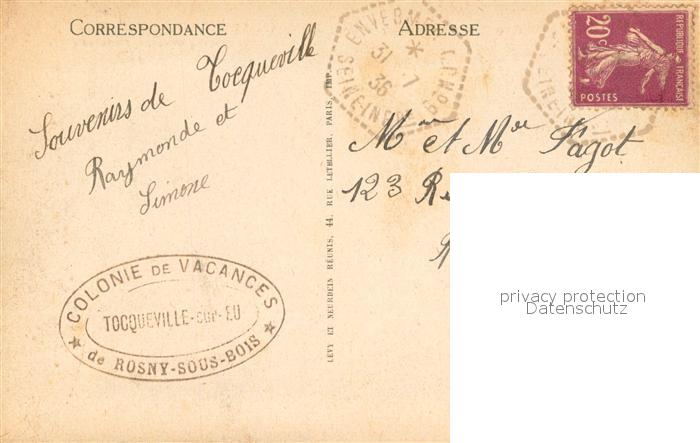 CORRESPONDANCE
ADRESSE
Souvenirs de Tocqueville
Raymonde et
Simone
COLONIE DE VACANCES
TOCQUEVILLE-SUR-EU
de ROSNY-SOUS-BOIS
LEVY ET NEURDEIN RÉUNIS, 44, RUE LETELLIER, PARIS, IMP.
ENVERMEU
31 - 7
36
SEINE INFRE
20c
REPUBLIQUE FRANÇAISE
POSTES
Mr et Mme Fagot
123
privacy protection
Datenschutz